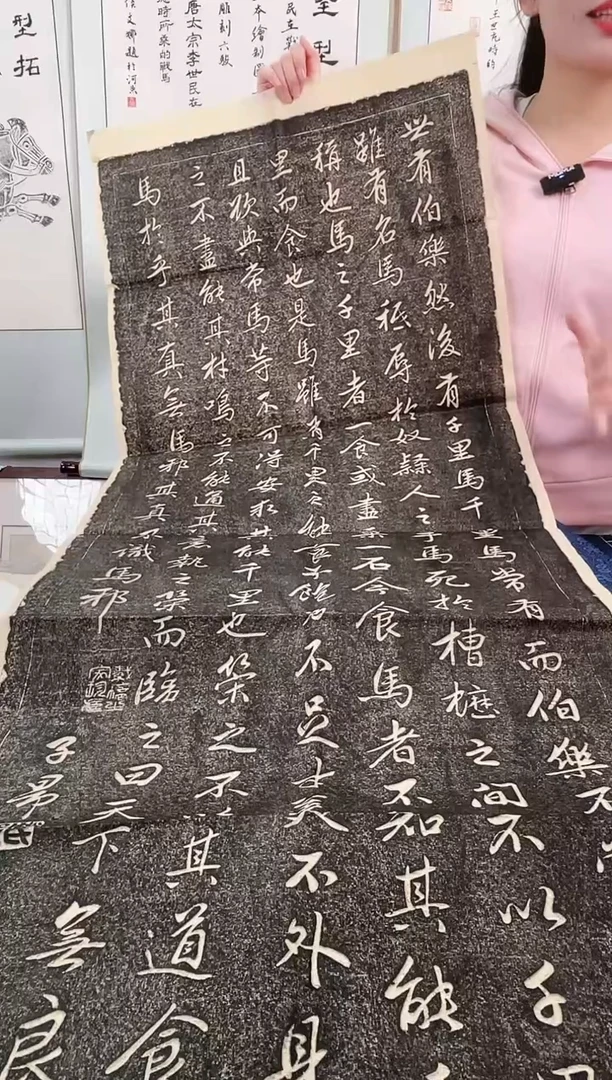 世有伯樂然後有千里馬千里馬常有而伯樂不常
雖有名馬祗辱於奴隸人之手馬死於槽櫪之間不以千里
稱也馬之千里者一食或盡粟一石今食馬者不知其能
里而食也是馬雖有千里之能食不飽力不足才美不外見
且欲與常馬等不可得安求其能千里也策之不以其道食
之不盡能其材鳴之不能通其意執之策而臨之曰天下無良
馬於乎其真無馬邪其真不識馬邪
子昂
型拓
唐太宗李世民在
時所乘的戰馬
雕刻六駿
本繪制
型
王世充時的